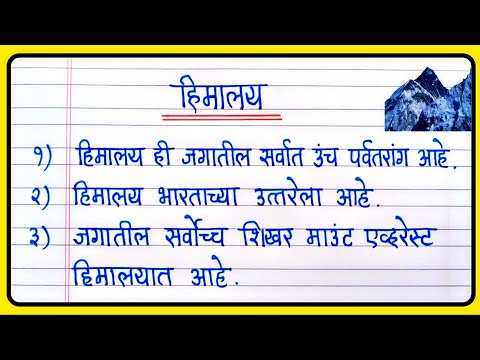 हिमालय
१) हिमालय ही जगातील सर्वात उंच पर्वतरांग आहे.
२) हिमालय भारताच्या उत्तरेला आहे.
३) जगातील सर्वोच्च शिखर माउंट एव्हरेस्ट
हिमालयात आहे.